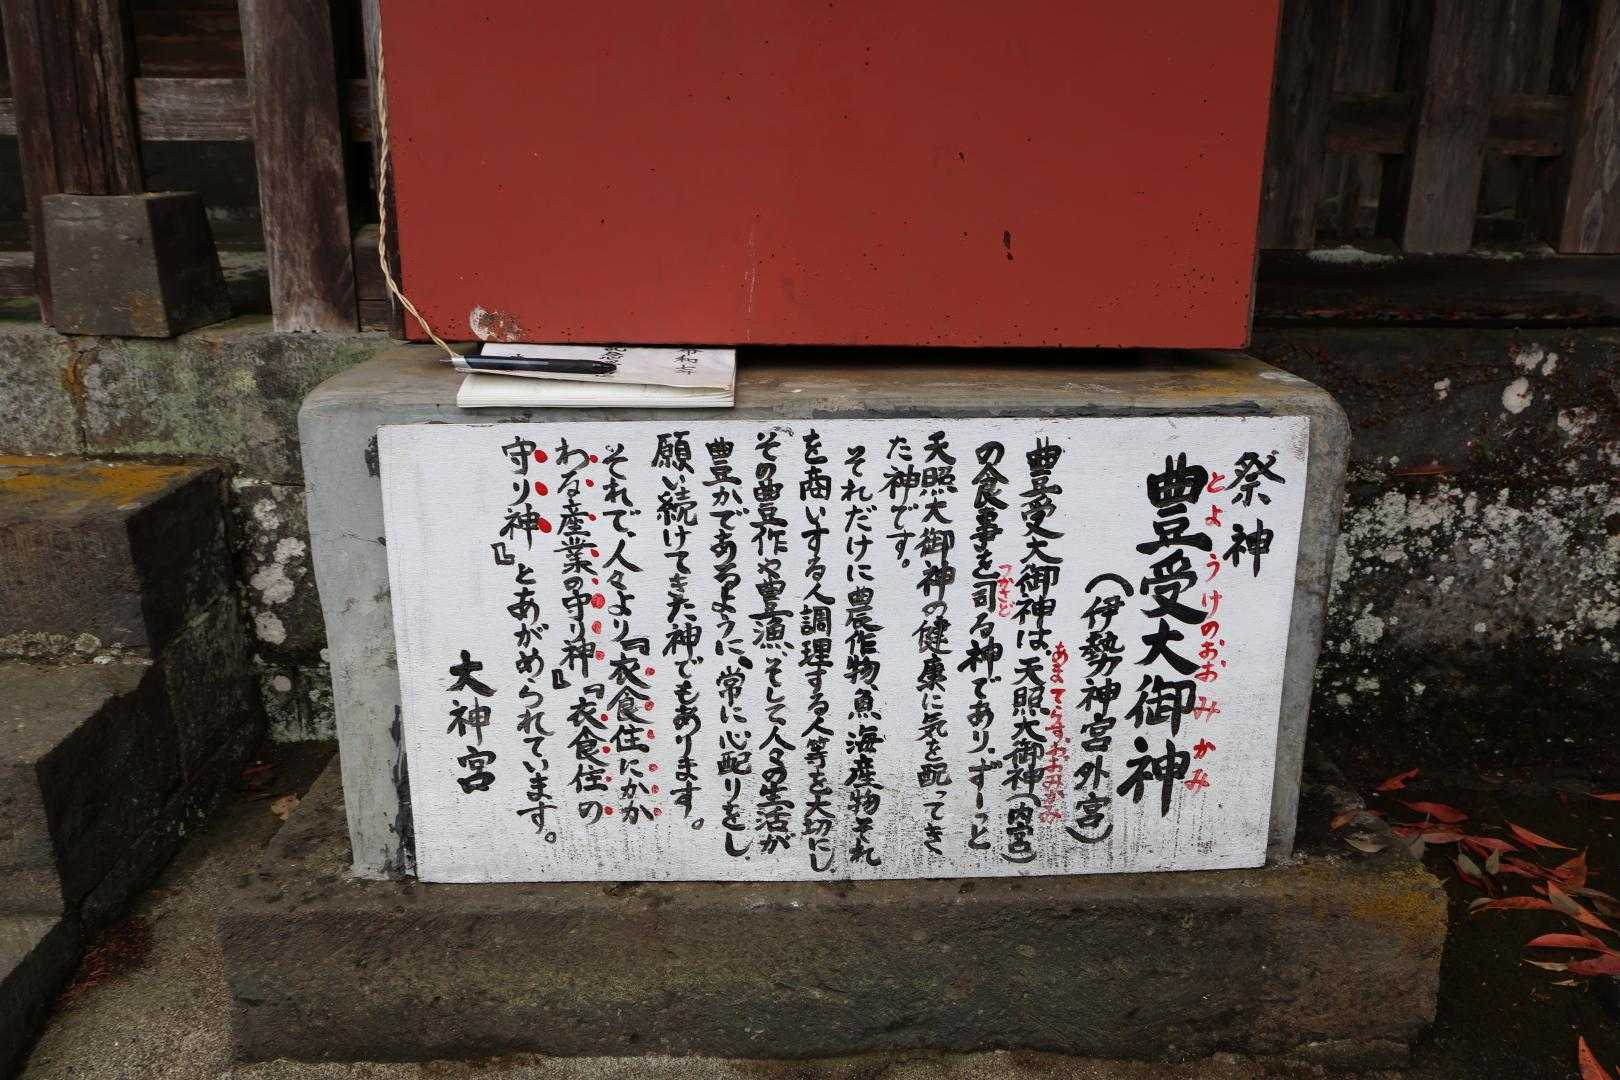 祭神
豊受大御神
とようけのおおみかみ
(伊勢神宮外宮)
豊受大御神は、天照大御神(内宮)
あまてらすおおみかみ
の食事を司る神であり、ずーっと
つかさど
天照大御神の健康に気を配ってき
た神です。
それだけに農作物、魚海産物それ
を商いする人、調理する人等を大切にし、
その豊作や豊漁、そして人々の生活が
豊かであるように、常に心配りをし、
願い続けてきた神でもあります。
それで、人々より『衣食住にかか
わる産業の守り神』『衣食住の
守り神』とあがめられています。
大神宮
令和七年